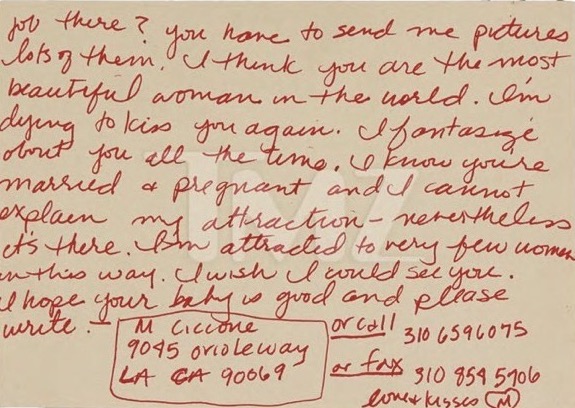 job there? you have to send me pictures
lots of them. I think you are the most
beautiful woman in the world. I'm
dying to kiss you again. I fantasize
about you all the time. I know you're
married & pregnant and I cannot
explain my attraction - nevertheless
it's there. I'm attracted to very few women
in this way. I wish I could see you.
I hope your baby is good and please
write. -
M Ciccone
9045 oriole way
LA CA 90069
or call 310 6596075
or fax 310 854 5706
love & kisses M
TMZ